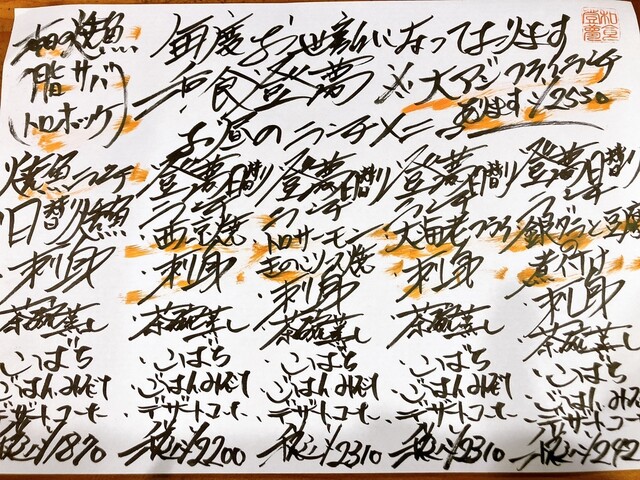 本日の焼魚
脂サバ
(トロホッケ)
毎度お世話になっております
和食登喜
※大アジフライランチ
あります ¥2530
お昼のランチメニュー
焼魚ランチ
日替り焼魚
・刺身
茶碗蒸し
こばち
ごはんみそ汁
デザートコーヒー
税込¥1870
登喜日替り
ランチ
西京焼
・刺身
・茶碗蒸し
・こばち
・ごはんみそ汁
・デザートコーヒー
税込¥2200
登喜日替り
ランチ
・トロサーモン
きのこソース焼
・刺身
・茶碗蒸し
・こばち
・ごはんみそ汁
・デザートコーヒー
税込¥2310
登喜日替り
ランチ
大海老フライ
・刺身
・茶碗蒸し
・こばち
・ごはんみそ汁
・デザートコーヒー
税込¥2310
登喜日替り
ランチ
銀ダラと豆腐
の煮付け
・刺身
・茶碗蒸し
・こばち
・ごはんみそ
デザートコー
税込¥242